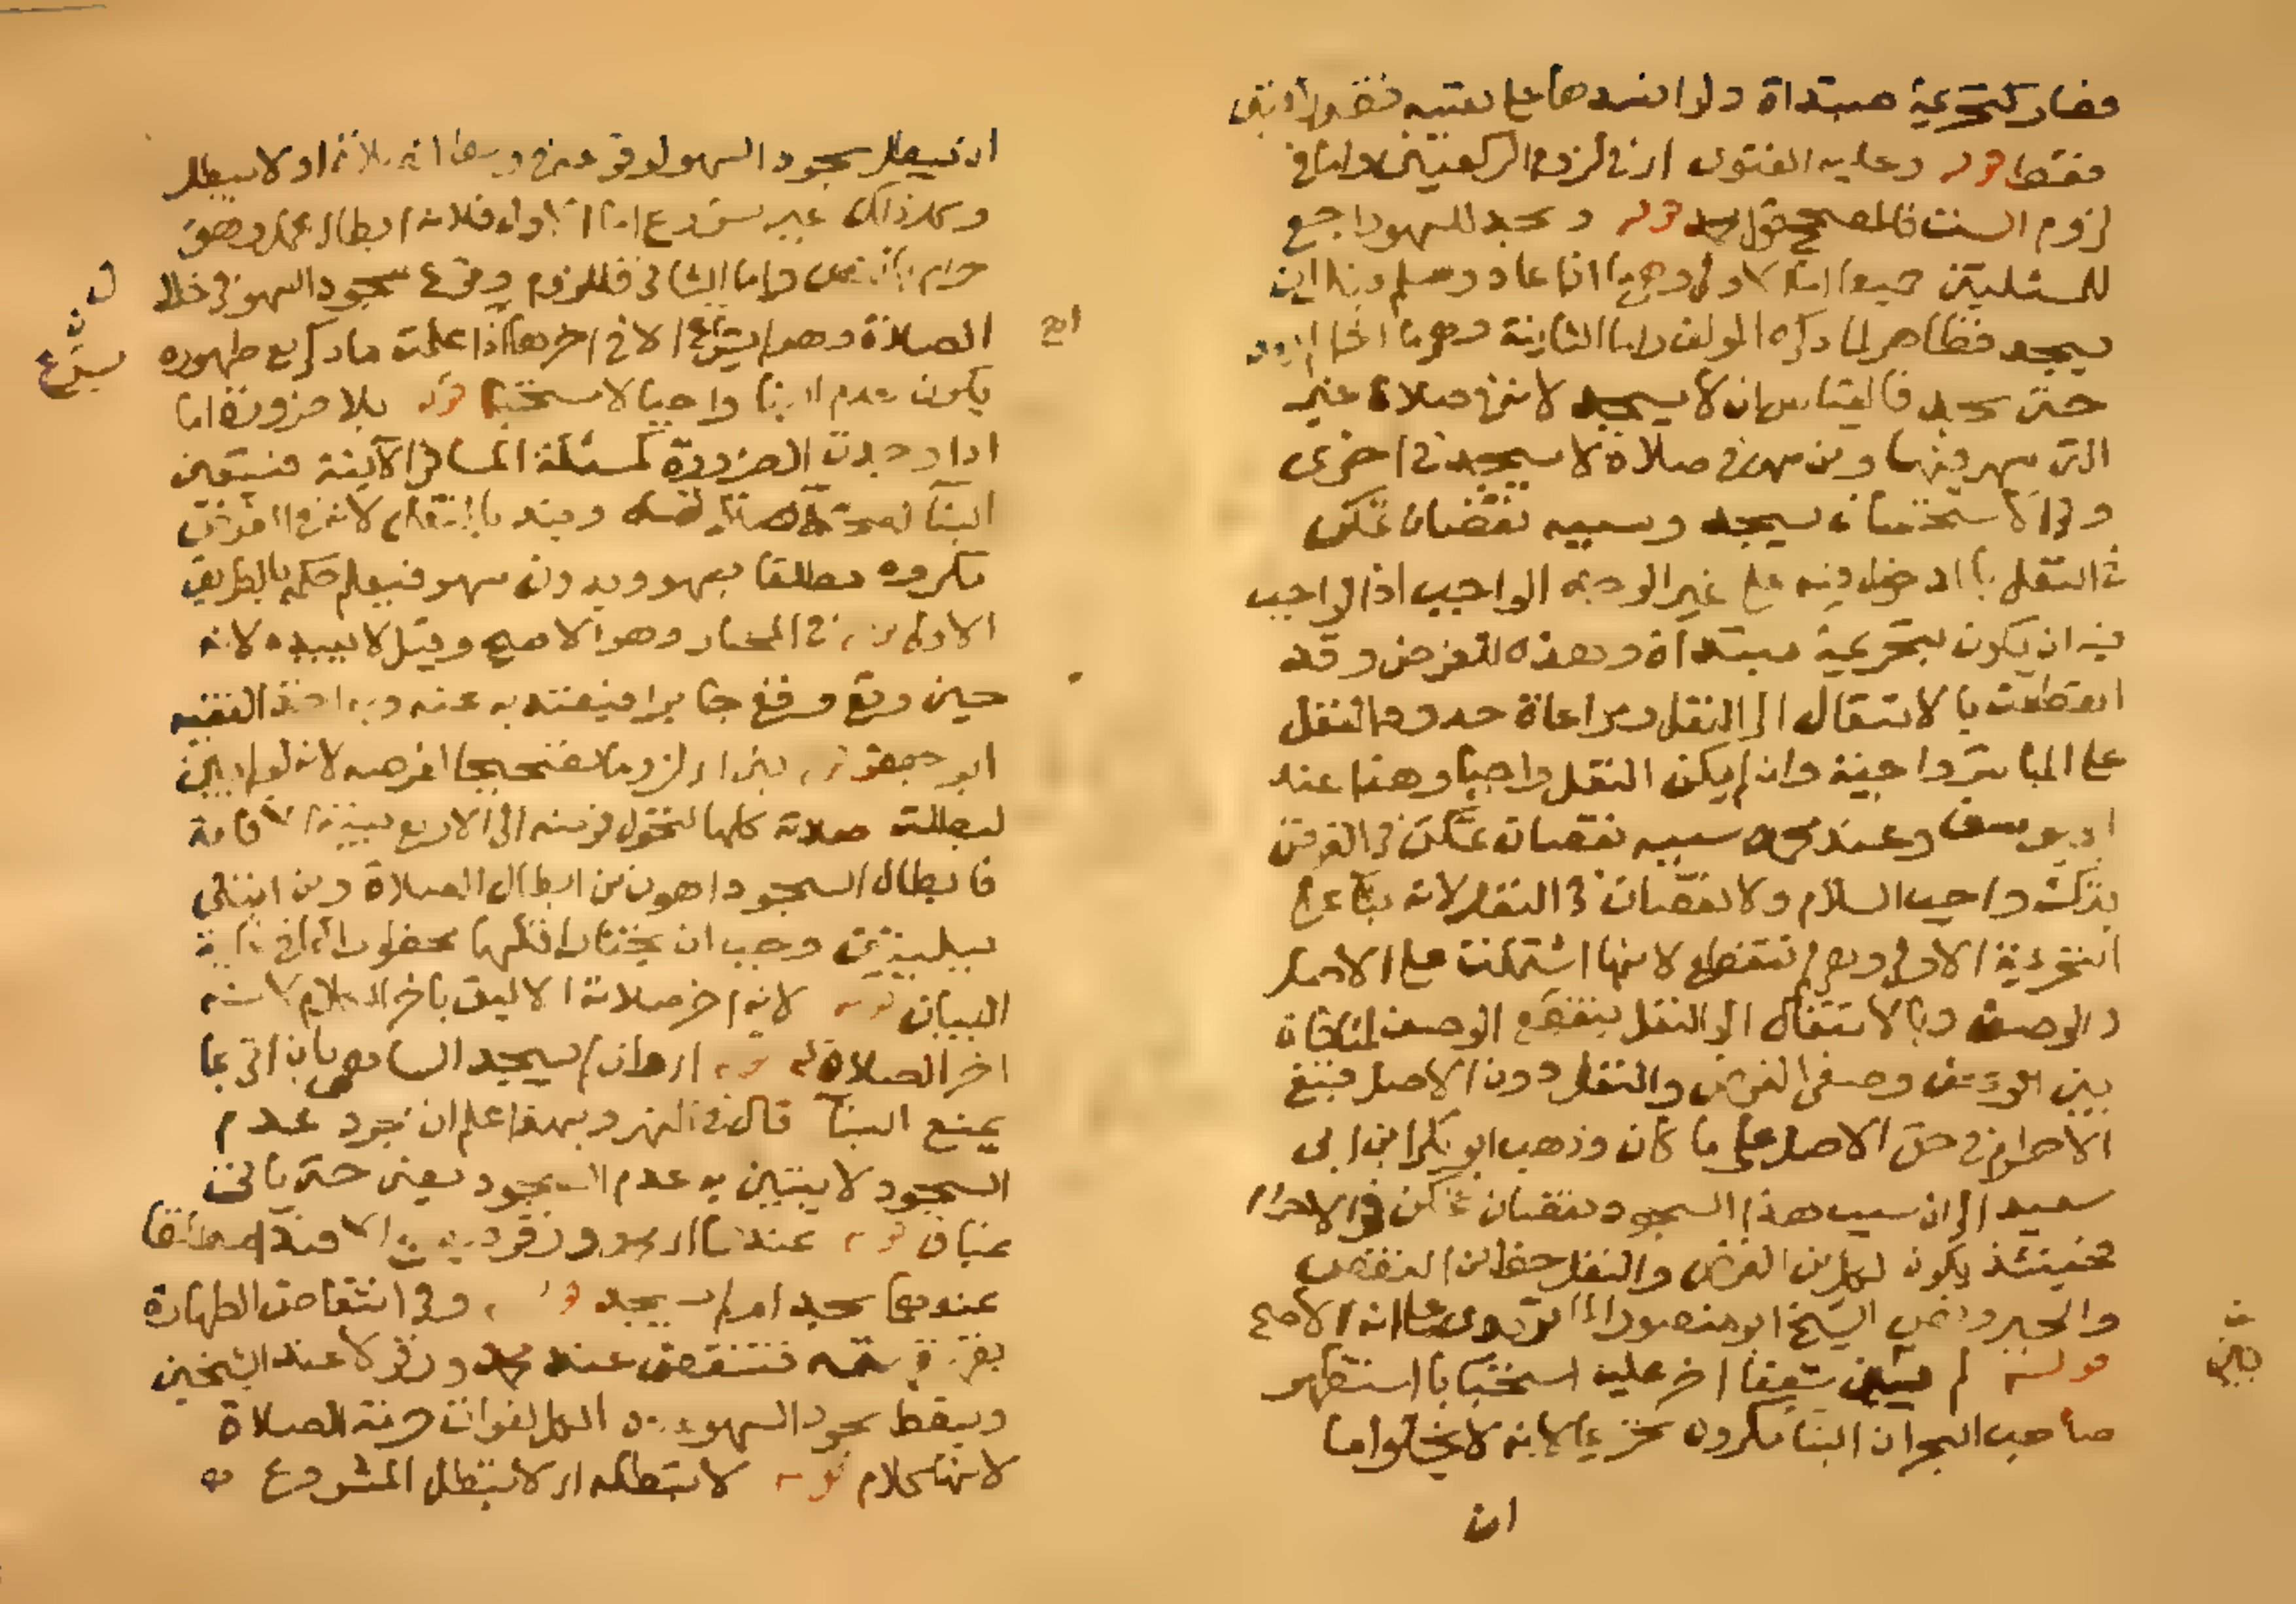 فصار كتحريمة مبتداة ولو افسدها على نفسه فقضى ركعتين
فقط قوله وعليه الفتوى اي في لزوم الركعتين واما في
لزوم الست فالصحيح قول محمد قوله وسجد للسهو راجع
للمسئلتين جميعا اما الاولى وهي ما اذا عاد وسلم
يسجد فظاهر لما ذكره المولف واما الثانية وهي ما اذا
حتى سجد فالقياس ان لا يسجد لانه في صلاة غير
التي سهى فيها ومن سهى في صلاة لا يسجد في اخرى
وفي الاستحسان يسجد وسببه نقصان تمكن
في النفل بالدخول فيه على غير الوجه الواجب اذ الواجب
فيه ان يكون بتحريمة مبتداة وهذه للفرض وقد
انقطعت بالانتقال الى النفل ومراعاة حدود النفل
على المباشر واجبة وان لم يكن النفل واجبا وهذا عند
ابي يوسف وعند محمد سببه نقصان تمكن في الفرض
بترك واجب السلام ولا نقصان في النفل لانه بناء على
التحريمة الاولى وهي لم تنقطع لانها اشتملت على الاصل
والوصف وبالانتقال الى النفل ينقطع الوصف لمنافاة
بين الوصف وصفي الفرض والنفل دون الاصل فبقي
الاحرام في حق الاصل على ما كان وذهب ابو بكر ابن ابي
سعيد الى ان سبب هذا السجود نقصان تمكن في الاحرام
فحينئذ يكون لكل من الفرض والنفل حظا من النقص
والجبر ونص الشيخ ابو منصور الماتريدي على انه الاصح
قوله لم يبن شفعا اخر عليه استحبابا استظهر
صاحب البحر ان البنا مكروه تحريما لانه لا يخلو اما
ان
ان يبطل سجود السهو لوقوعه في وسط الصلاة او لا يبطل
وكل ذلك غير مشروع اما الاول فلانه ابطال عمل وهو
حرام بالنص واما الثاني فللزوم وقوع سجود السهو في خلال
الصلاة وهو لم يشرع الا في اخرها اذا علمت ما ذكر مع ظهوره
يكون عدم البنا واجبا لا مستحبا قوله بلا ضرورة اما
اذا وجدت الضرورة كمسئلة المسافر الاتية فيتعين
البنا لصحة صلاته وقيد بالنفل لانه في الفرض
مكروه مطلقا بسهو وبدون سهو فيعلم حكمه بالطريق
الاولى قوله في المختار وهو الاصح وقيل لا يعيده لانه
حين وقع وقع جابرا فيعتد به عنه وبه اخذ الفقيه
ابو جعفر قوله بنى اي لزوما تصحيحا لفرضه لانه لو لم يبن
لبطلت صلاته كلها لتحول فرضه الى الاربع بنية الاقامة
فابطال السجود اهون من ابطال الصلاة ومن ابتلي
ببليتين وجب ان يختار اقلهما محظورا
البيان قوله لانه اخر صلاته الاليق باخر السلام لانه
اخر الصلاة قوله اي وان لم يسجد الساهي بان اتى بما
يمنع البنا قال في النهر وبهذا علم ان مجرد عدم
السجود لا يتبين به عدم السجود يعني حتى ياتي
بمناف قوله عندنا اي محمد وزفر
عندهما سجد ام لم يسجد قوله وفي انتقاض الطهارة
بقهقهته فتنتقض عند محمد وزفر لا عند الشيخين
ويسقط سجود السهو عند الكل لفوات حرمة الصلاة
لانها كلام قوله لا تبطله اي لا تبطل المشروع